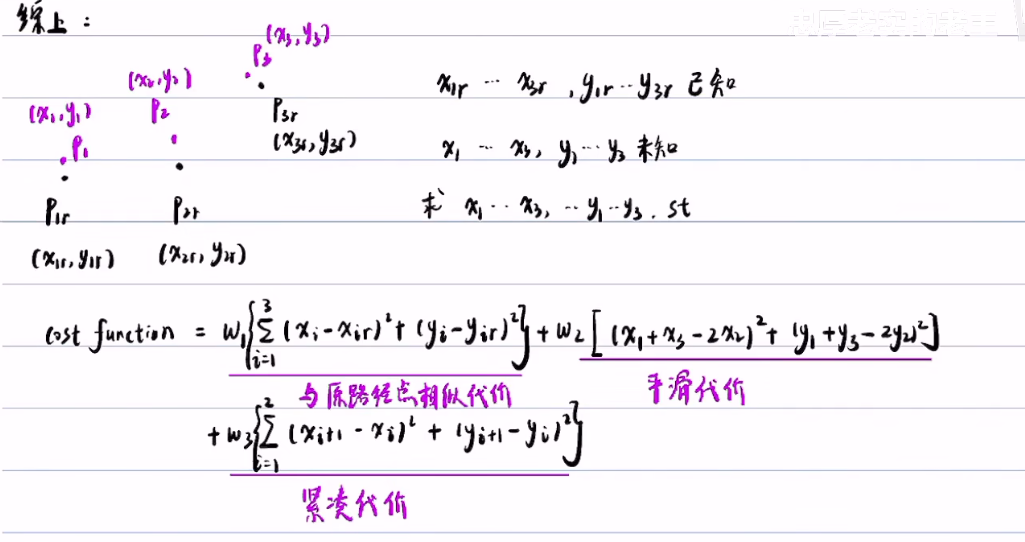 综上：
(x₃, y₃)
P₃
(x₂, y₂)
P₂
(x₁, y₁)
P₁
P₃ᵣ
(x₃ᵣ, y₃ᵣ)
P₁ᵣ
P₂ᵣ
(x₁ᵣ, y₁ᵣ)
(x₂ᵣ, y₂ᵣ)
x₁ᵣ ··· x₃ᵣ , y₁ᵣ ··· y₃ᵣ 已知
x₁ ··· x₃, y₁ ··· y₃ 未知
求 x₁ ·· x₃, ·· y₁ ·· y₃ . st
cost function = w₁{∑_{i=1}^{3} (xᵢ - xᵢᵣ)² + (yᵢ - yᵢᵣ)²} + w₂ [(x₁ + x₃ - 2x₂)² + (y₁ + y₃ - 2y₂)²]
与原路径点相似代价
平滑代价
+ w₃{∑_{i=1}^{2} (xᵢ₊₁ - xᵢ)² + (yᵢ₊₁ - yᵢ)²}
紧凑代价